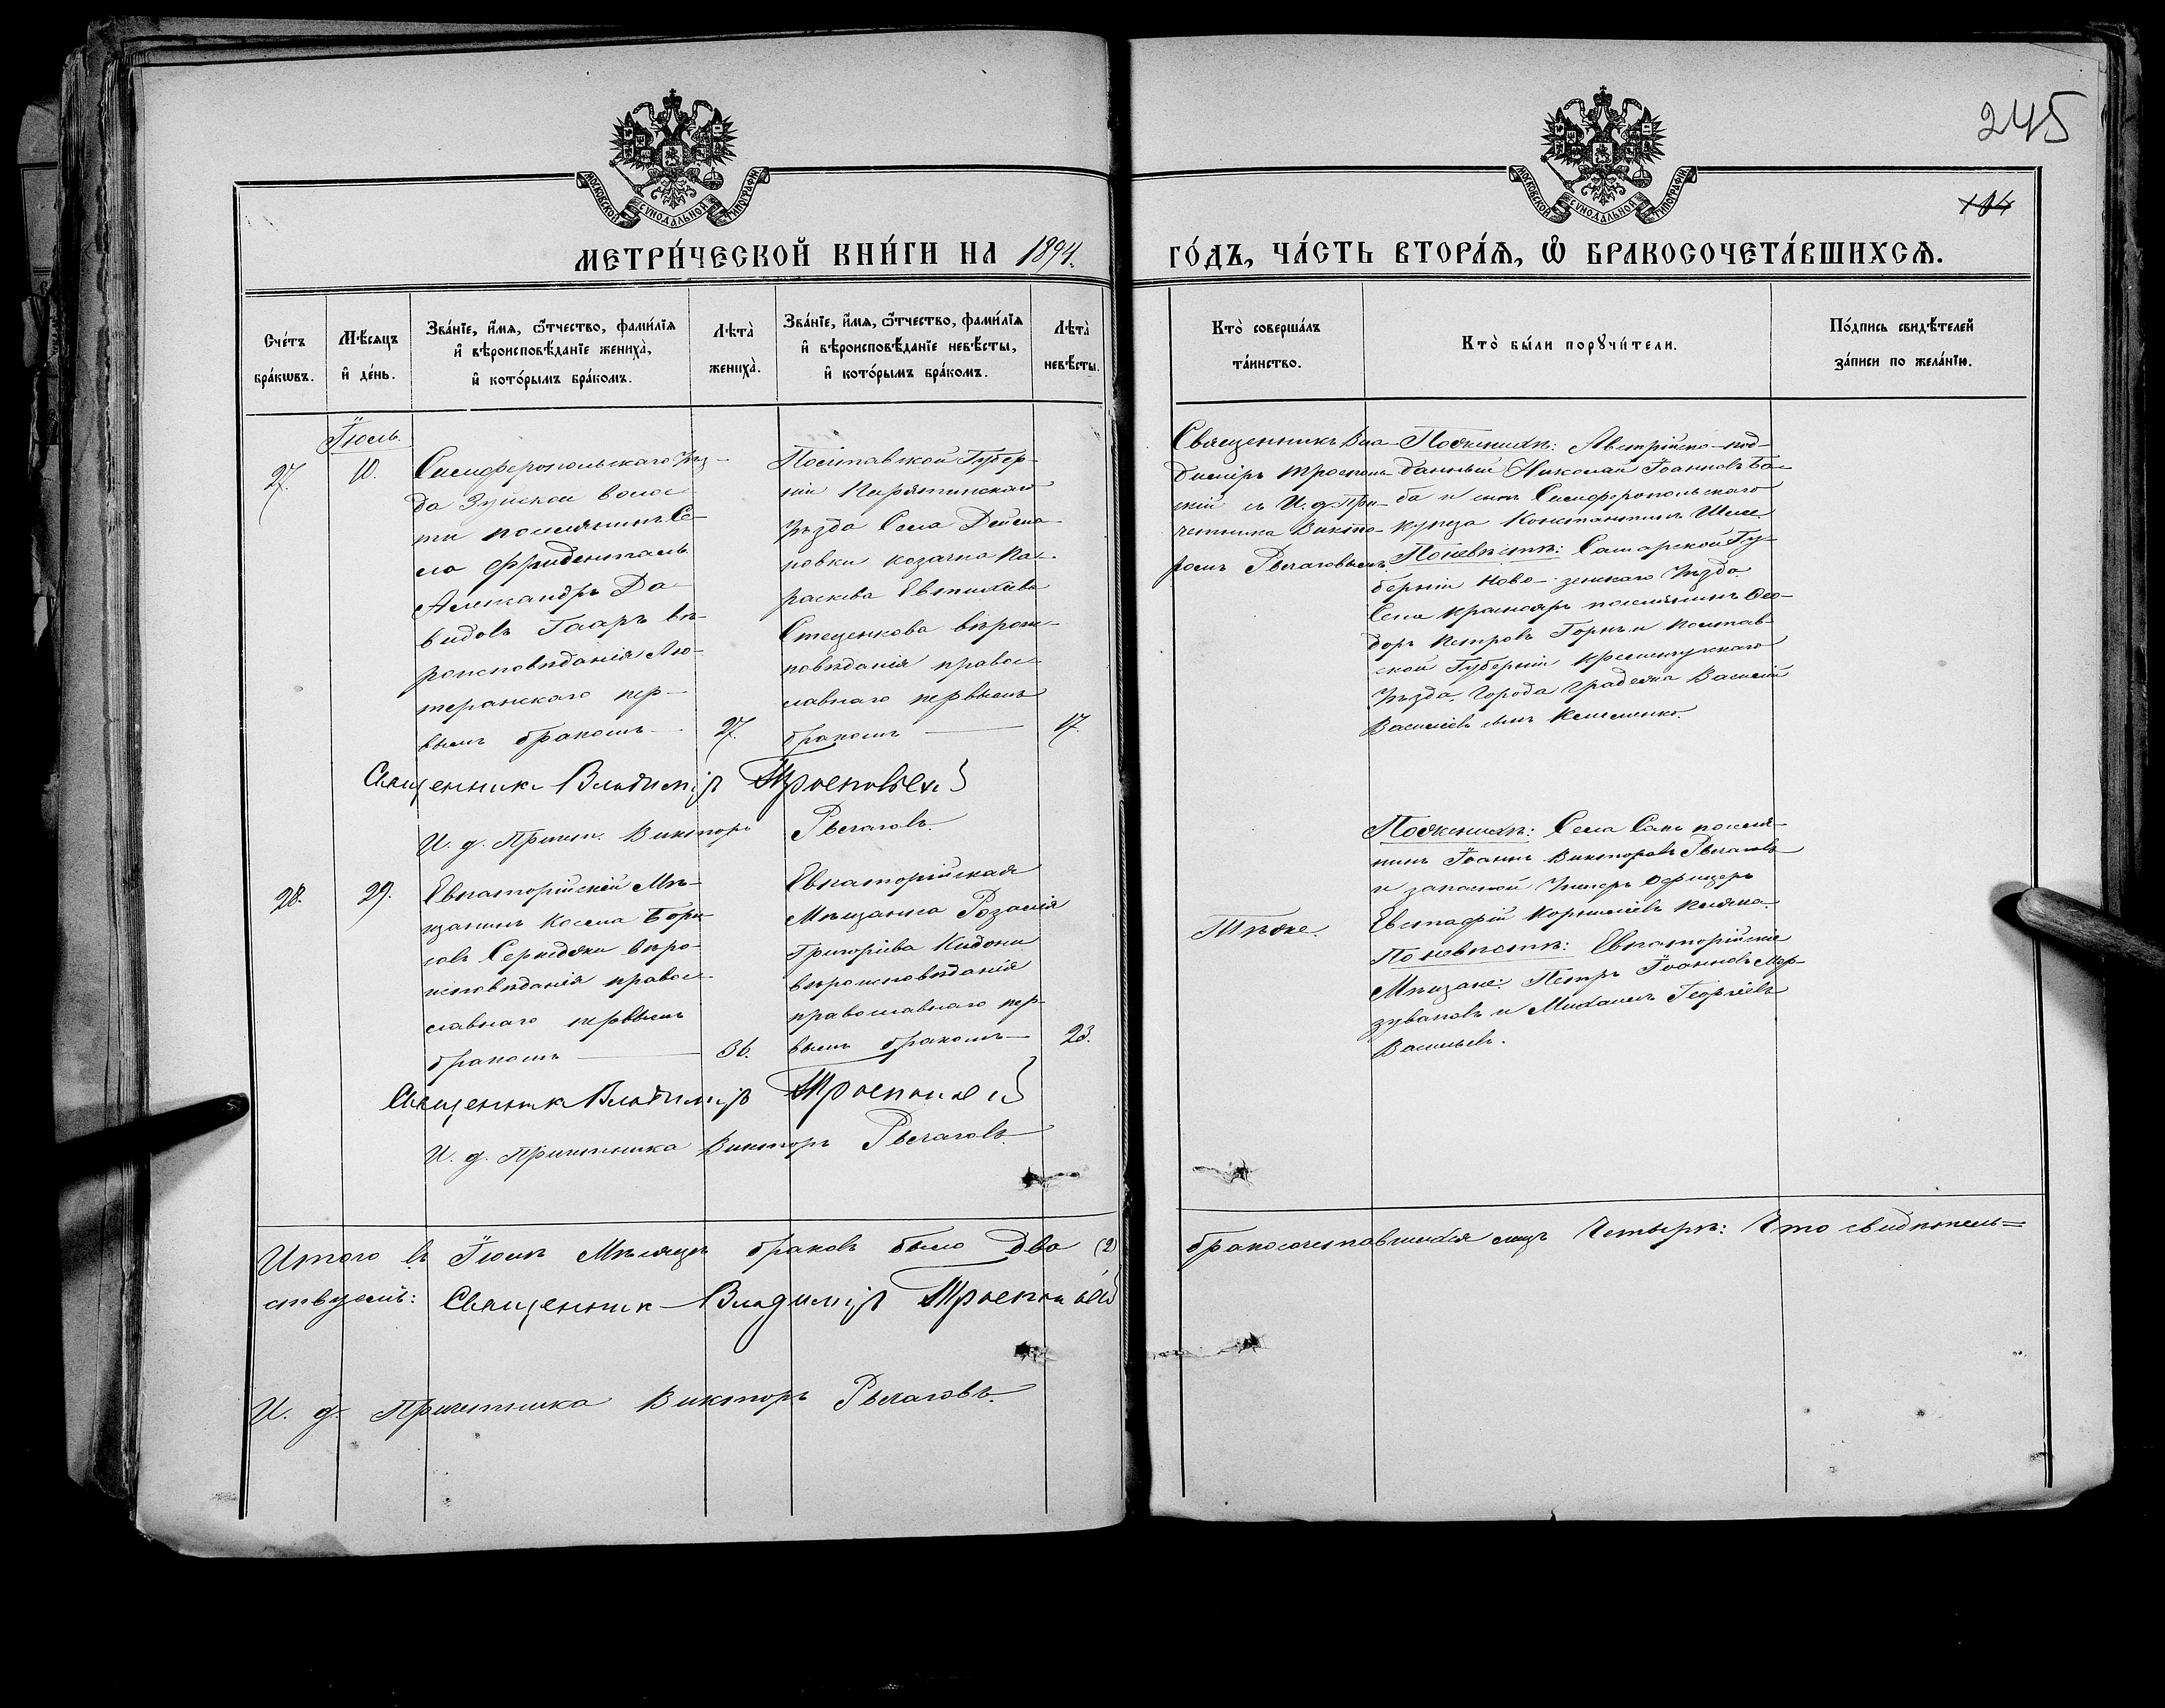 245
104
МОСКОВСКОЙ СУНОДАЛЬНОЙ ТИПОГРАФІИ
МОСКОВСКОЙ СУНОДАЛЬНОЙ ТИПОГРАФІИ
МЕТРИ́ЧЕСКОЙ КНИ́ГИ НА 1894. ГО́ДЪ, ЧА́СТЬ ВТОРА́Я, Ѡ БРАКОСОЧЕТА́ВШИХСЯ.
Сче́тъ бра́кѡвъ.
Мѣ́сяцъ и҆ де́нь.
Зва́нїе, и҆́мя, ѻ҆́тчество, фами́лїя
и҆ вѣроисповѣ́данїе жениха̀,
и҆ кото́рымъ бра́комъ.
Лѣта̀ жениха̀.
Зва́нїе, и҆́мя, ѻ҆́тчество, фами́лїя
и҆ вѣроисповѣ́данїе невѣ́сты,
и҆ кото́рымъ бра́комъ.
Лѣта̀ невѣ́сты.
Кто̀ соверша́лъ
та́инство.
Кто̀ бы́ли порꙋчи́тели.
По́дпись свидѣ́телей
за́писи по жела́нїю.
Іюль.
27.
10.
Симферопольскаго Уѣз-
да Зуйской волос-
ти поселянинъ Се-
ла Фриденталь
Александръ Да-
видовъ Гааръ вѣ-
роисповѣданія Лю-
теранскаго пер-
вымъ бракомъ
27.
Полтавской Губер-
ніи Пирятинскаго
Уѣзда Села Дейма-
новки козачка Па-
раскева Евтихіева
Стеценкова вѣроис-
повѣданія правос-
лавнаго первымъ
бракомъ
17.
Священникъ Вла-
диміръ Троепольс-
скій съ И. д. При-
четника Викто-
ромъ Рычаговымъ.
По женихѣ: Австрійско-под-
данный Николай Іоанновъ Ба-
ба и сынъ Симферопольскаго
купца Константинъ
По невѣстѣ: Самарской Гу-
берніи Ново-узенскаго Уѣзда
Села Краснояръ поселянинъ Ѳео-
доръ Петровъ Горнъ и Полтав-
ской Губерніи Кременчугскаго
Уѣзда, города Градежска Василій
Васильевъ сынъ
Священникъ Владиміръ Троепольскій
И. д. Причет. Викторъ Рычаговъ.
28.
29.
Евпаторійскій Мѣ-
щанинъ Косма Бори-
совъ вѣро-
исповѣданія правос-
лавнаго первымъ
бракомъ
36.
Евпаторійская
Мѣщанка Розалія
Григоріева Кидони
вѣроисповѣданія
православнаго пер-
вымъ бракомъ
23.
Тѣже.
По женихѣ: Села Сакъ поселя-
нинъ Іоаннъ Викторовъ Рычаговъ
и запасной Унтеръ Офицеръ
Евстафій Корниліевъ
По невѣстѣ: Евпаторійскіе
Мѣщане: Петръ Іоанновъ Мур-
зуваловъ и Михаилъ Георгіевъ
Васильевъ.
Священникъ Владиміръ Троепольскій
И. д. Причетника Викторъ Рычаговъ
Итого въ Іюлѣ Мѣсяцѣ браковъ было два (2) бракосочетавшихся лицъ Четыре: Что свидѣтель=
ствуемъ: Священникъ Владиміръ Троепольскій
И. д. Причетника Викторъ Рычаговъ.